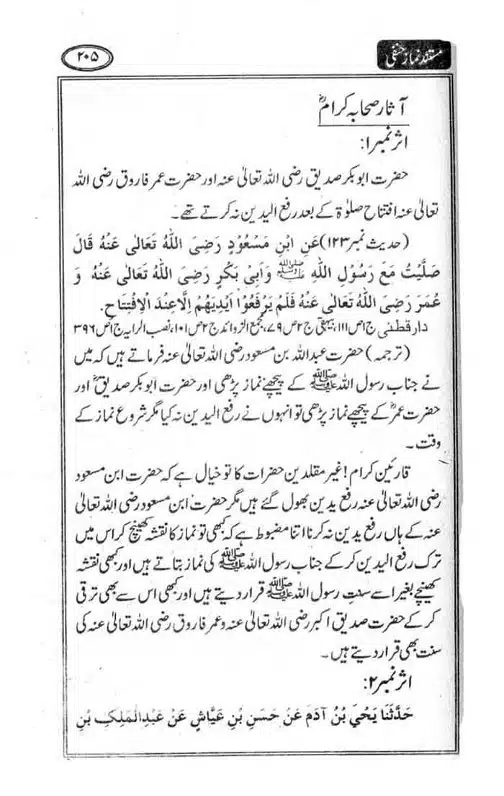 مستند نماز حنفی
۲۰۵
آثار صحابہ کرامؓ
اثر نمبر۱:
حضرت ابوبکر صدیق رضی اللہ تعالیٰ عنہ اور حضرت عمر فاروق رضی اللہ
تعالیٰ عنہ افتتاح صلوٰۃ کے بعد رفع الیدین نہ کرتے تھے۔
(حدیث نمبر ۱۲۳) عَنِ ابْنِ مَسْعُوْدٍ رَضِیَ اللّٰہُ تَعَالٰی عَنْہُ قَالَ
صَلَّیْتُ مَعَ رَسُوْلِ اللّٰہِ ﷺ وَاَبِیْ بَکْرٍ رَضِیَ اللّٰہُ تَعَالٰی عَنْہُ وَ
عُمَرَ رَضِیَ اللّٰہُ تَعَالٰی عَنْہُ فَلَمْ یَرْفَعُوْا اَیْدِیَہُمْ اِلَّاعِنْدَ الْاِفْتِتَاحِ.
دارقطنی ج۱ص۱۱۱، بیہقی ج۲ص۷۹، مجمع الزوائد ج۲ص۱۰۱، نصب الرایہ ج۱ص۳۹۶
(ترجمہ) حضرت عبداللہ بن مسعود رضی اللہ تعالیٰ عنہ فرماتے ہیں کہ میں
نے جناب رسول اللہ ﷺ کے پیچھے نماز پڑھی اور حضرت ابوبکر صدیقؓ اور
حضرت عمرؓ کے پیچھے نماز پڑھی تو انہوں نے رفع الیدین نہ کیا مگر شروع نماز کے
وقت۔
قارئین کرام! غیر مقلدین حضرات کا تو خیال ہے کہ حضرت ابن مسعود
رضی اللہ تعالیٰ عنہ رفع یدین بھول گئے ہیں مگر حضرت ابن مسعود رضی اللہ تعالیٰ
عنہ کے ہاں رفع یدین نہ کرنا اتنا مضبوط ہے کہ کبھی تو نماز کا نقشہ کھینچ کر اس میں
ترک رفع الیدین کر کے جناب رسول اللہ ﷺ کی نماز بتاتے ہیں اور کبھی نقشہ
کھینچے بغیر اسے سنت رسول اللہ ﷺ قرار دیتے ہیں اور کبھی اس سے بھی ترقی
کر کے حضرت صدیق اکبر رضی اللہ تعالیٰ عنہ و عمر فاروق رضی اللہ تعالیٰ عنہ کی
سنت بھی قرار دیتے ہیں۔
اثر نمبر۲:
حَدَّثَنَا یَحْیَ بْنُ آدَمَ عَنْ حَسَنِ بْنِ عَیَّاشٍ عَنْ عَبْدِالْمَلِکِ بْنِ